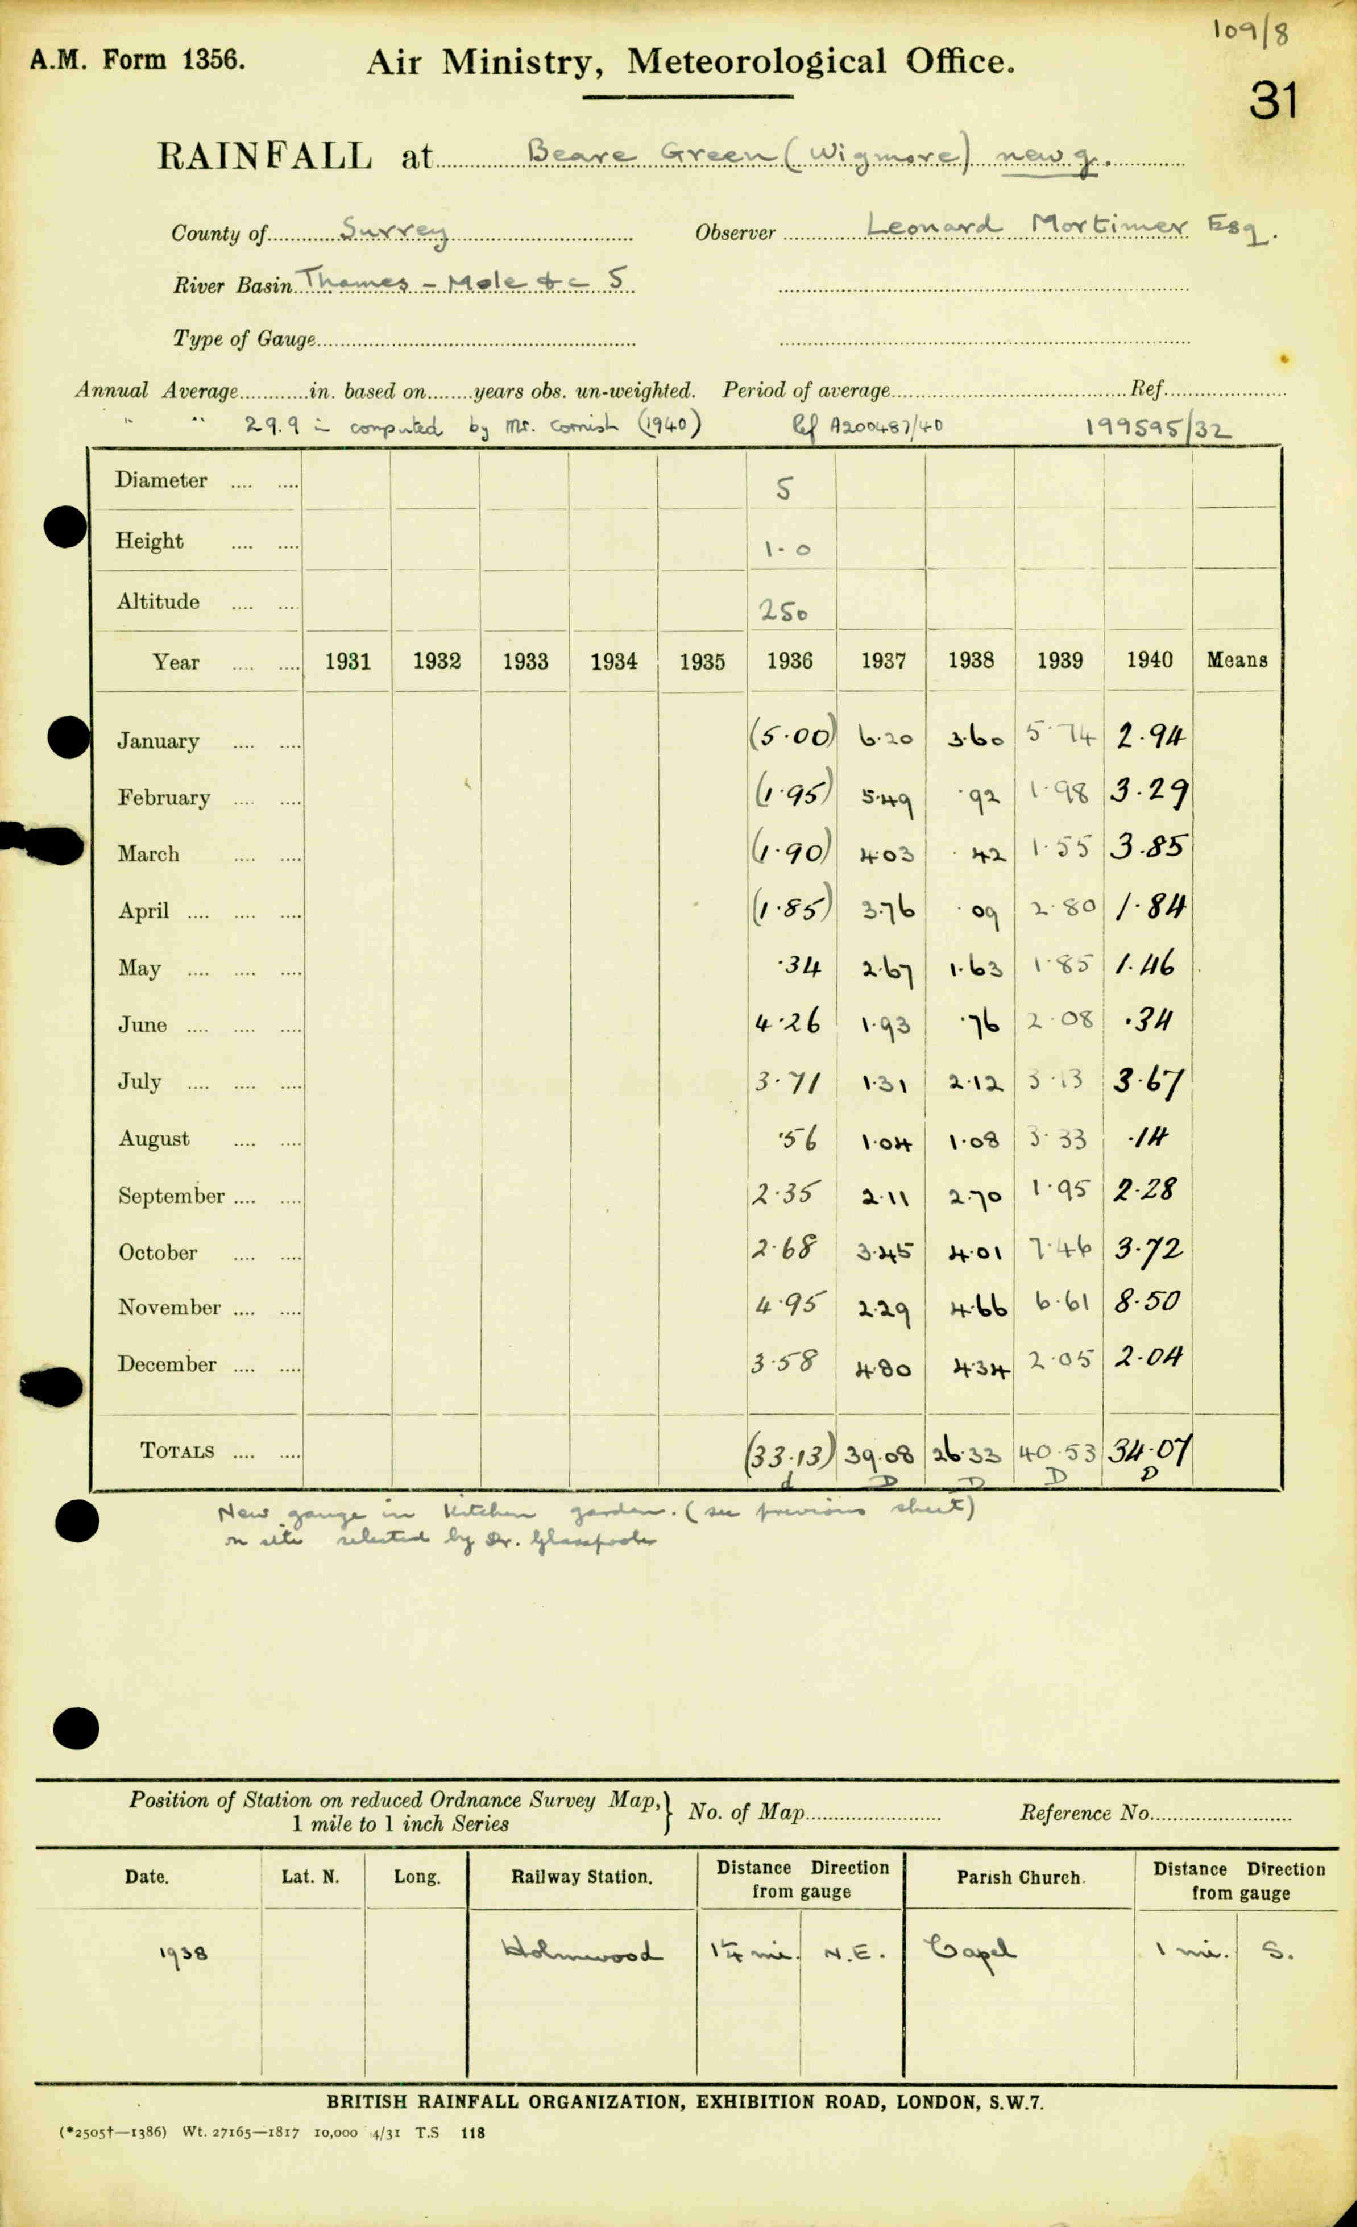 109/8
A.M. Form 1356. Air Ministry, Meteorological Office.
31
RAINFALL at Beare Green (Wigmore) new g.
County of Surrey Observer Leonard Mortimer Esq.
River Basin Thames - Mole &c 5
Type of Gauge
Annual Average in. based on years obs. un-weighted. Period of average Ref.
" " 29.9 in computed by Mr. Cornish (1940) Ref A200487/40 199595/32
Diameter .... .... 5
Height .... .... 1.0
Altitude .... .... 250
Year .... .... 1931 1932 1933 1934 1935 1936 1937 1938 1939 1940 Means
January .... .... (5.00) 6.20 3.60 5.74 2.94
February .... .... (1.95) 5.49 .92 1.98 3.29
March .... .... (1.90) 4.03 .42 1.55 3.85
April .... .... .... (1.85) 3.76 .09 2.80 1.84
May .... .... .... .34 2.67 1.63 1.85 1.46
June .... .... .... 4.26 1.93 .76 2.08 .34
July .... .... .... 3.71 1.31 2.12 3.13 3.67
August .... .... .56 1.04 1.08 3.33 .14
September .... .... 2.35 2.11 2.70 1.95 2.28
October .... .... 2.68 3.45 4.01 7.46 3.72
November .... .... 4.95 2.29 4.66 6.61 8.50
December .... .... 3.58 4.80 4.34 2.05 2.04
TOTALS .... .... (33.13) 39.08 26.33 40.53 34.07
d D D D D
New gauge in kitchen garden. (see previous sheet)
on site selected by Dr. Glasspoole
Position of Station on reduced Ordnance Survey Map, } No. of Map Reference No.
1 mile to 1 inch Series
Date. Lat. N. Long. Railway Station. Distance Direction from gauge Parish Church. Distance Direction from gauge
1938 Holmwood 1¼ mi. N.E. Capel 1 mi. S.
BRITISH RAINFALL ORGANIZATION, EXHIBITION ROAD, LONDON, S.W.7.
(*2505†—1386) Wt. 27165—1817 10,000 4/31 T.S 118